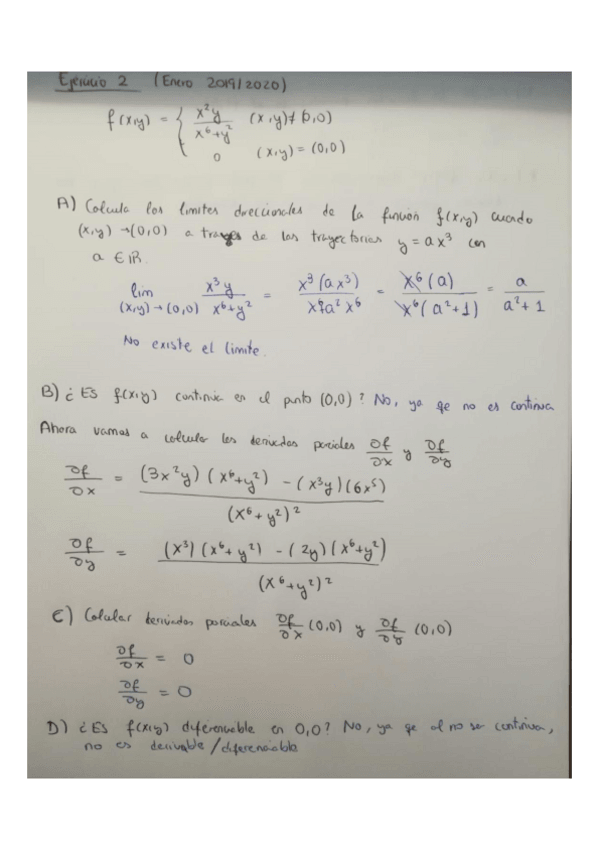 Ejercicio 2 (Enero 2019/2020)
f(x,y) = { x²y / x⁶+y² (x,y)≠(0,0)
0 (x,y) = (0,0)
A) Calcula los limites direccionales de la función f(x,y) cuando
(x,y) → (0,0) a traves de las trayectorias y = ax³ con
a ∈ ℝ.
lim (x,y)→(0,0) x³y / x⁶+y² = x³(ax³) / x⁶+a²x⁶ = x⁶(a) / x⁶(a²+1) = a / a²+1
No existe el limite.
B) ¿Es f(x,y) continua en el punto (0,0)? No, ya qe no es continua
Ahora vamos a calcular las derivadas parciales ∂f/∂x y ∂f/∂y
∂f/∂x = (3x²y)(x⁶+y²) - (x³y)(6x⁵) / (x⁶+y²)²
∂f/∂y = (x³)(x⁶+y²) - (2y)(x⁶+y²) / (x⁶+y²)²
C) Calcular derivadas parciales ∂f/∂x (0,0) y ∂f/∂y (0,0)
∂f/∂x = 0
∂f/∂y = 0
D) ¿Es f(x,y) diferenciable en 0,0? No, ya qe al no ser continua,
no es derivable/diferenciable